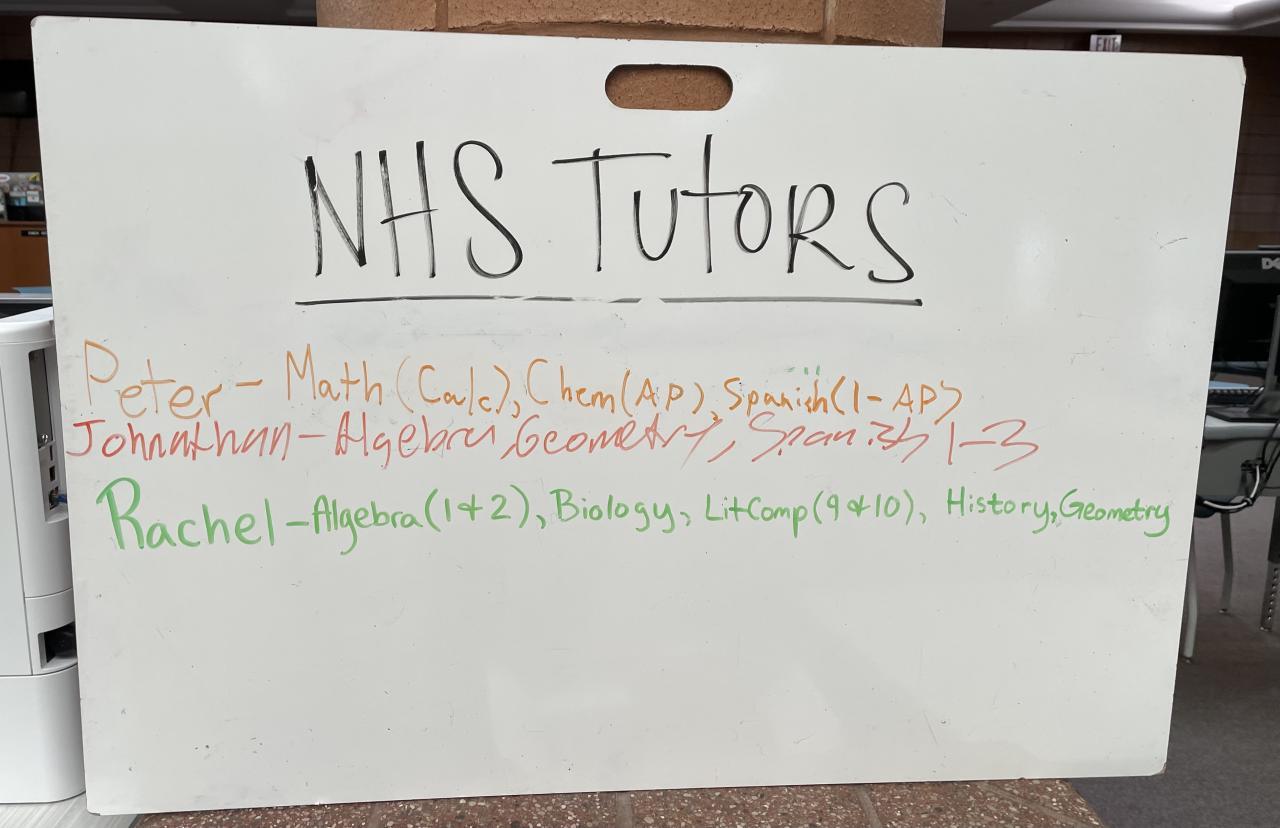 EXIT
NHS Tutors
Peter - Math (Calc), Chem (AP), Spanish (1-AP)
Johnathan - Algebra, Geometry, Spanish 1-3
Rachel - Algebra (1 & 2), Biology, LitComp (9 & 10), History, Geometry